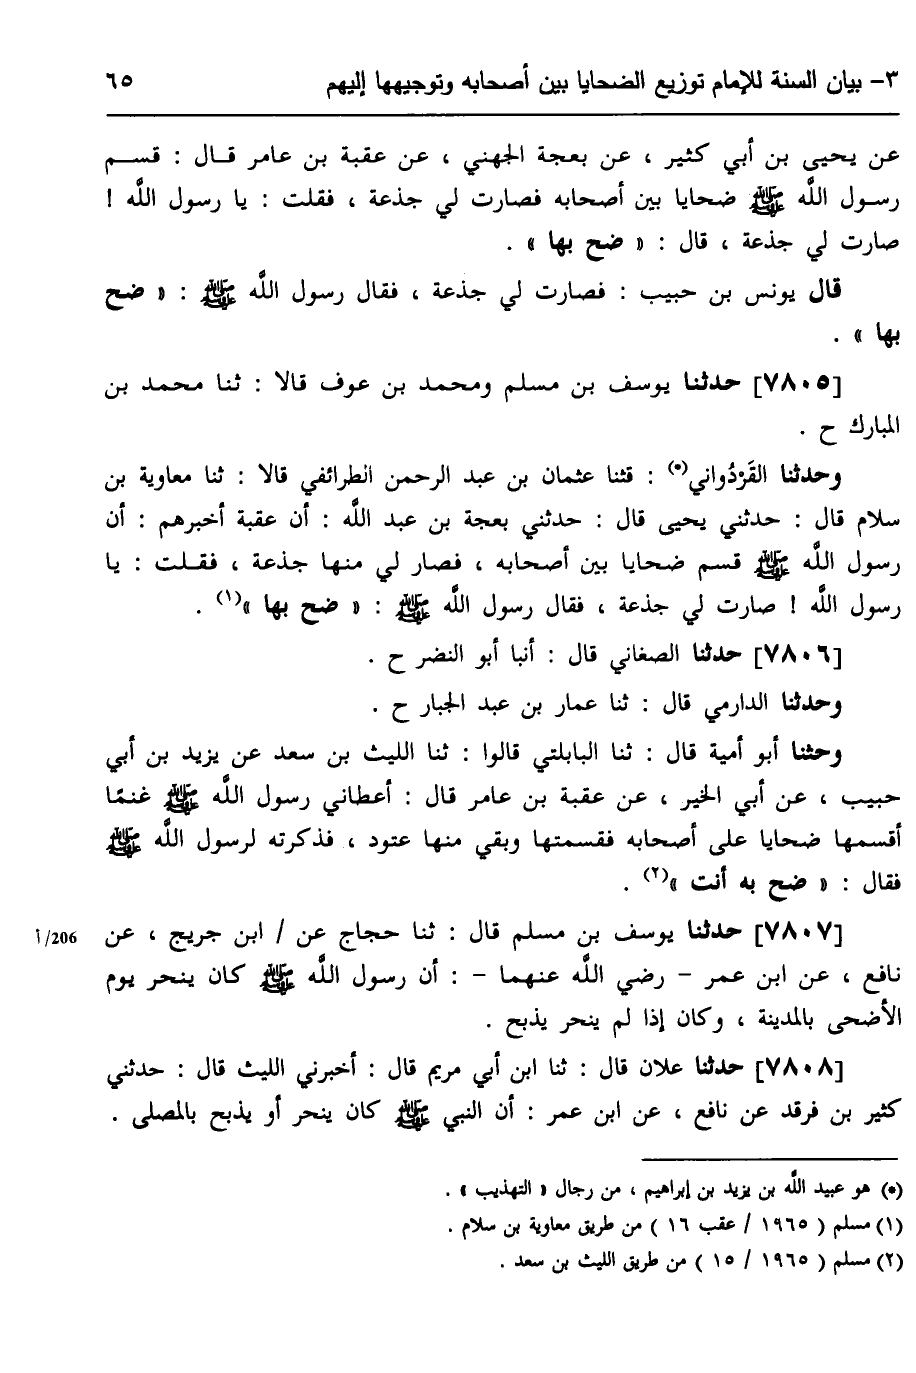 ٣- بيان السنة للإمام توزيع الضحايا بين أصحابه وتوجيهها إليهم ٦٥
عن يحيى بن أبي كثير ، عن بعجة الجهني ، عن عقبة بن عامر قـال : قسـم
رسـول اللَّه ﷺ ضحايا بين أصحابه فصارت لي جذعة ، فقلت : يا رسول اللَّه !
صارت لي جذعة ، قال : « ضح بها » .
قال يونس بن حبيب : فصارت لي جذعة ، فقال رسول اللَّه ﷺ : « ضح
بها » .
[٧٨٠٥] حدثنا يوسف بن مسلم ومحمد بن عوف قالا : ثنا محمد بن
المبارك ح .
وحدثنا القَرْدُواني(*) : قثنا عثمان بن عبد الرحمن الطرائفي قالا : ثنا معاوية بن
سلام قال : حدثني يحيى قال : حدثني بعجة بن عبد اللَّه : أن عقبة أخبرهم : أن
رسول اللَّه ﷺ قسم ضحايا بين أصحابه ، فصار لي منها جذعة ، فقـلـت : يا
رسول اللَّه ! صارت لي جذعة ، فقال رسول اللَّه ﷺ : « ضح بها »(١) .
[٧٨٠٦] حدثنا الصغاني قال : أنبا أبو النضر ح .
وحدثنا الدارمي قال : ثنا عمار بن عبد الجبار ح .
وحثنا أبو أمية قال : ثنا البابلتي قالوا : ثنا الليث بن سعد عن يزيد بن أبي
حبيب ، عن أبي الخير ، عن عقبة بن عامر قال : أعطاني رسول اللَّه ﷺ غنمًا
أقسمها ضحايا على أصحابه فقسمتها وبقي منها عتود ، فذكرته لرسول اللَّه ﷺ
فقال : « ضح به أنت »(٢) .
[٧٨٠٧] حدثنا يوسف بن مسلم قال : ثنا حجاج عن / ابن جريج ، عن 206/أ
نافع ، عن ابن عمر - رضي اللَّه عنهما - : أن رسول اللَّه ﷺ كان ينحر يوم
الأضحى بالمدينة ، وكان إذا لم ينحر يذبح .
[٧٨٠٨] حدثنا علان قال : ثنا ابن أبي مريم قال : أخبرني الليث قال : حدثني
كثير بن فرقد عن نافع ، عن ابن عمر : أن النبي ﷺ كان ينحر أو يذبح بالمصلى .
(*) هو عبيد اللَّه بن يزيد بن إبراهيم ، من رجال « التهذيب » .
(١) مسلم ( ١٩٦٥ / عقب ١٦ ) من طريق معاوية بن سلام .
(٢) مسلم ( ١٩٦٥ / ١٥ ) من طريق الليث بن سعد .